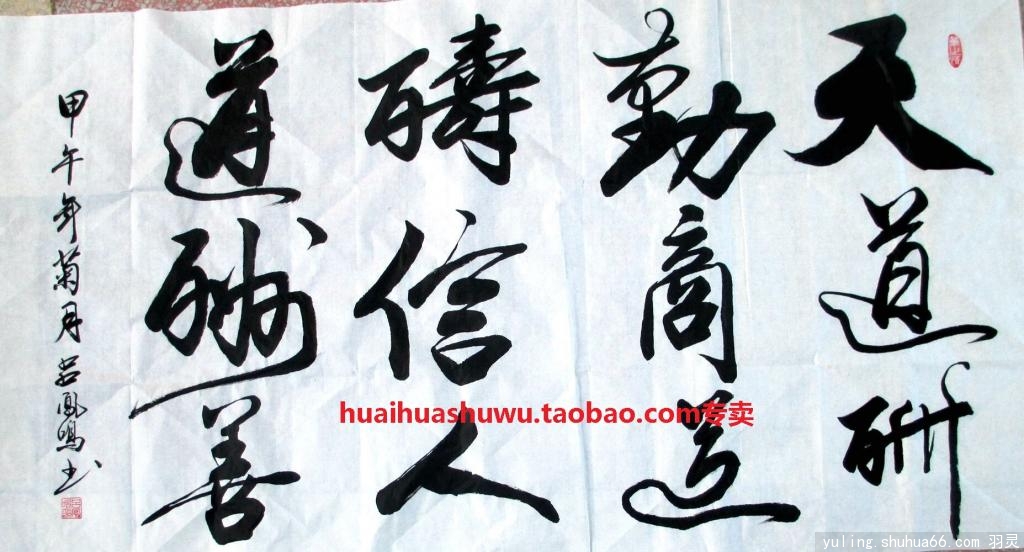 天道酬
勤商道
酬信人
道酬善
甲午年菊月吕凤鸣书
huaihuashuwu.taobao.com专卖
yuling.shuhua66.com 羽灵